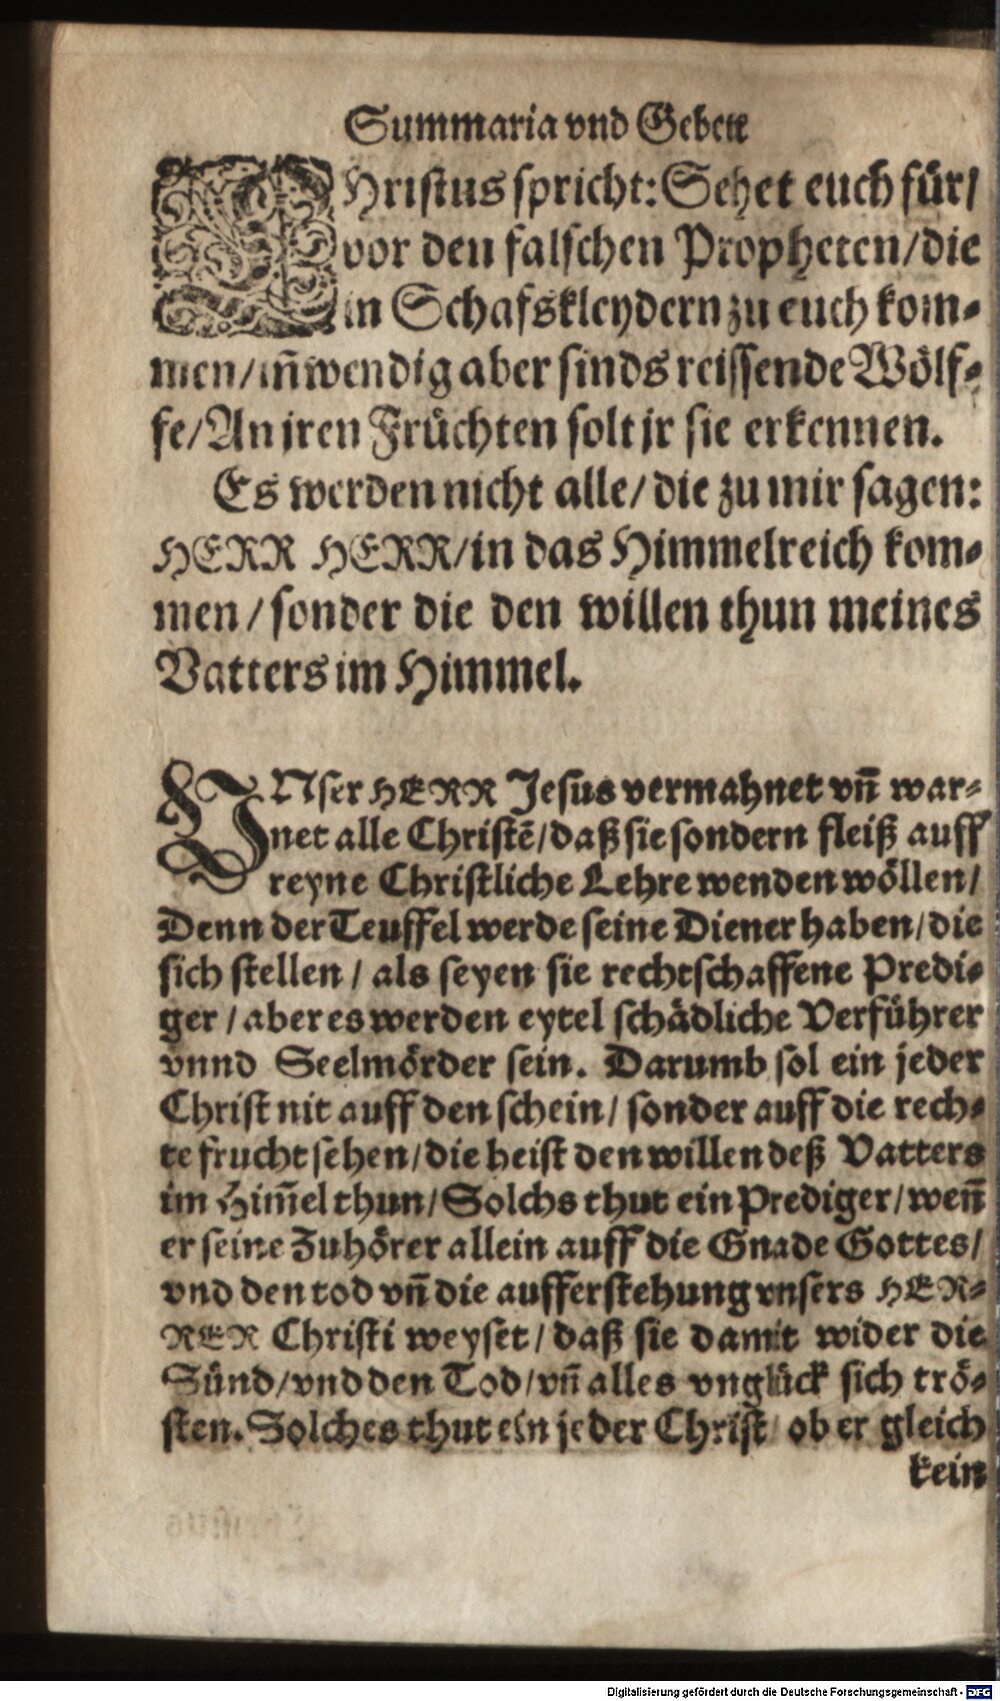 Summaria vnd Gebett
CHristus spricht: Sehet euch für/
vor den falschen Propheten/die
in Schafskleydern zu euch kom⸗
men/iñwendig aber sinds reissende Wölf⸗
fe/An jren Früchten solt jr sie erkennen.
Es werden nicht alle/die zu mir sagen:
HERR HERR/in das Himmelreich kom⸗
men/sonder die den willen thun meines
Vatters im Himmel.
VNser HERR Jesus vermahnet vñ war⸗
net alle Christẽ/daß sie sondern fleiß auff
reyne Christliche Lehre wenden wöllen/
Denn der Teuffel werde seine Diener haben/die
sich stellen/als seyen sie rechtschaffene Predi⸗
ger/aber es werden eytel schädliche Verführer
vnnd Seelmörder sein. Darumb sol ein jeder
Christ nit auff den schein/sonder auff die rech⸗
te frucht sehen/die heist den willen deß Vatters
im Him̃el thun/Solchs thut ein Prediger/weñ
er seine Zuhörer allein auff die Gnade Gottes/
vnd den tod vñ die aufferstehung vnsers HER⸗
REN Christi weyset/daß sie damit wider die
Sünd/vnd den Tod/vñ alles vnglück sich trö⸗
sten. Solches thut ein jeder Christ/ob er gleich
kein
Digitalisierung gefördert durch die Deutsche Forschungsgemeinschaft - DFG